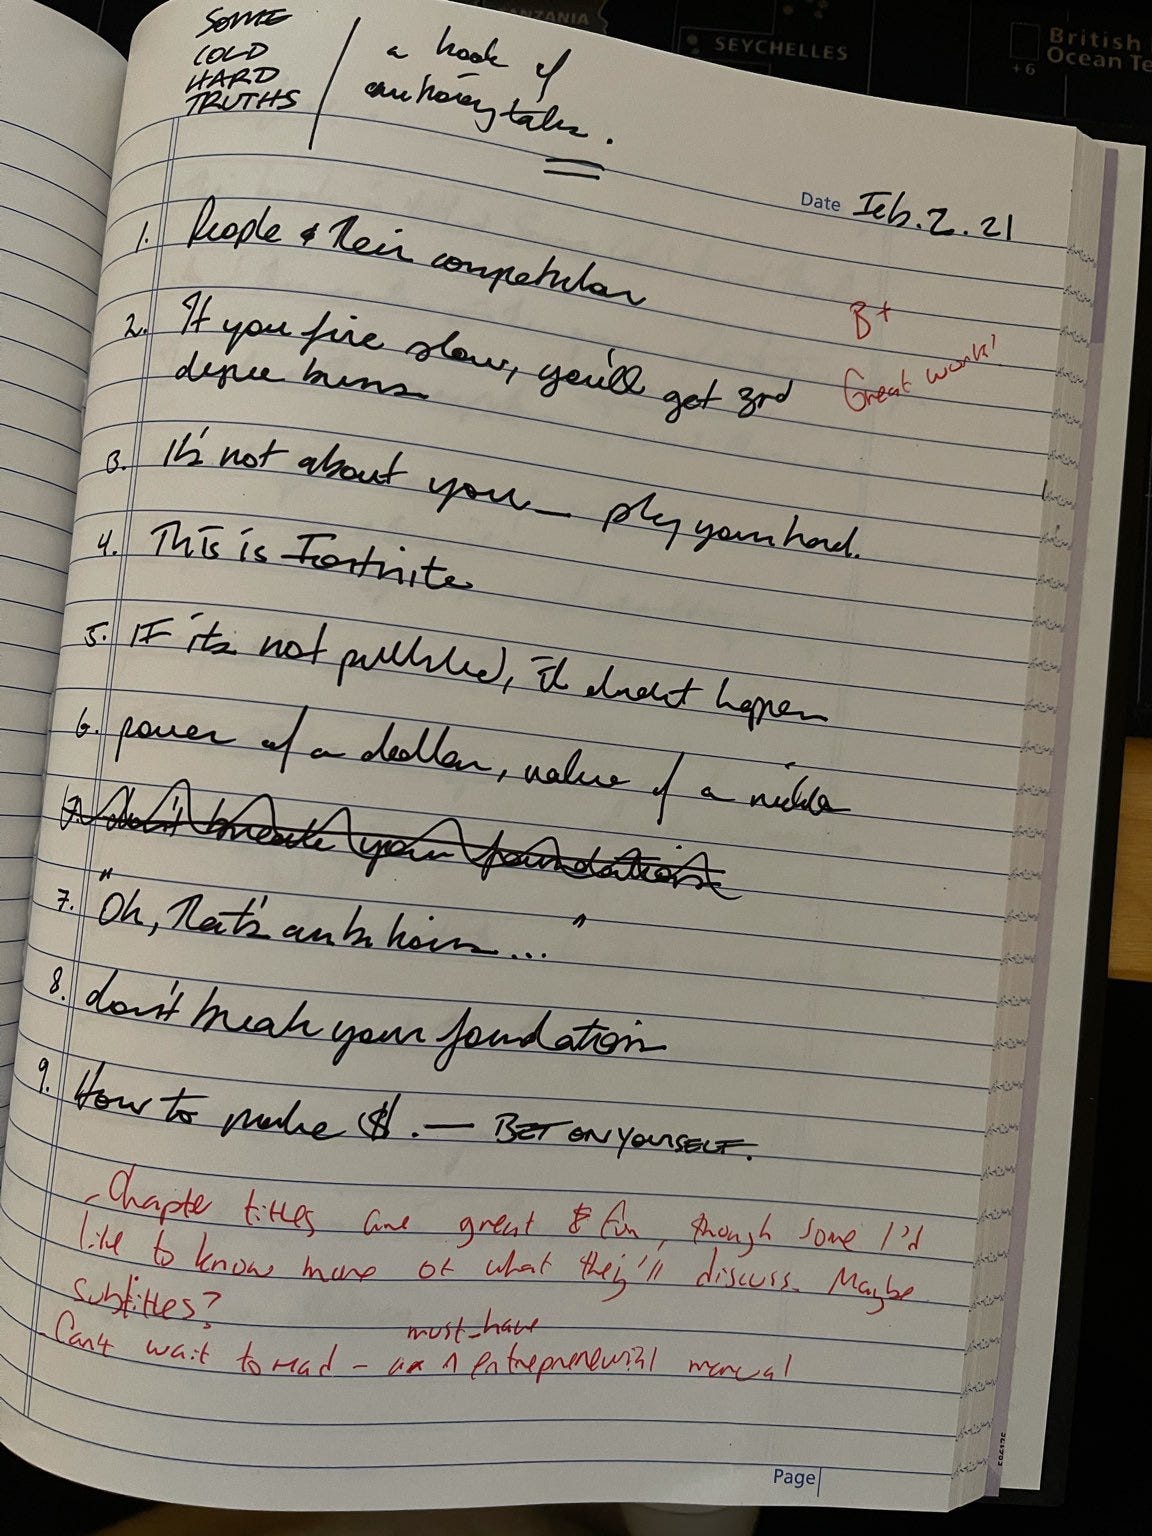 TANZANIA
SEYCHELLES
British
Ocean Te
+6
SOME
COLD
HARD
TRUTHS
a book of
cautionary tales.
Date Feb. 2. 21
1. People & Their competition
B+
Great work!
2. If you fire slow, you'll get 3rd
degree burns
3. It's not about you_ play your hand.
4. This is Fortnite
5. IF its not published, it doesn't happen
6. power of a dollar, value of a nickle
7. don't break your foundation
7. "Oh, That's ambitious..."
8. don't break your foundation
9. How to make $. — BET ON YOURSELF.
- Chapter titles are great & fun, though some I'd
like to know more of what they'll discuss. Maybe
subtitles?
must-have
- Can't wait to read - an entrepreneurial manual
Page